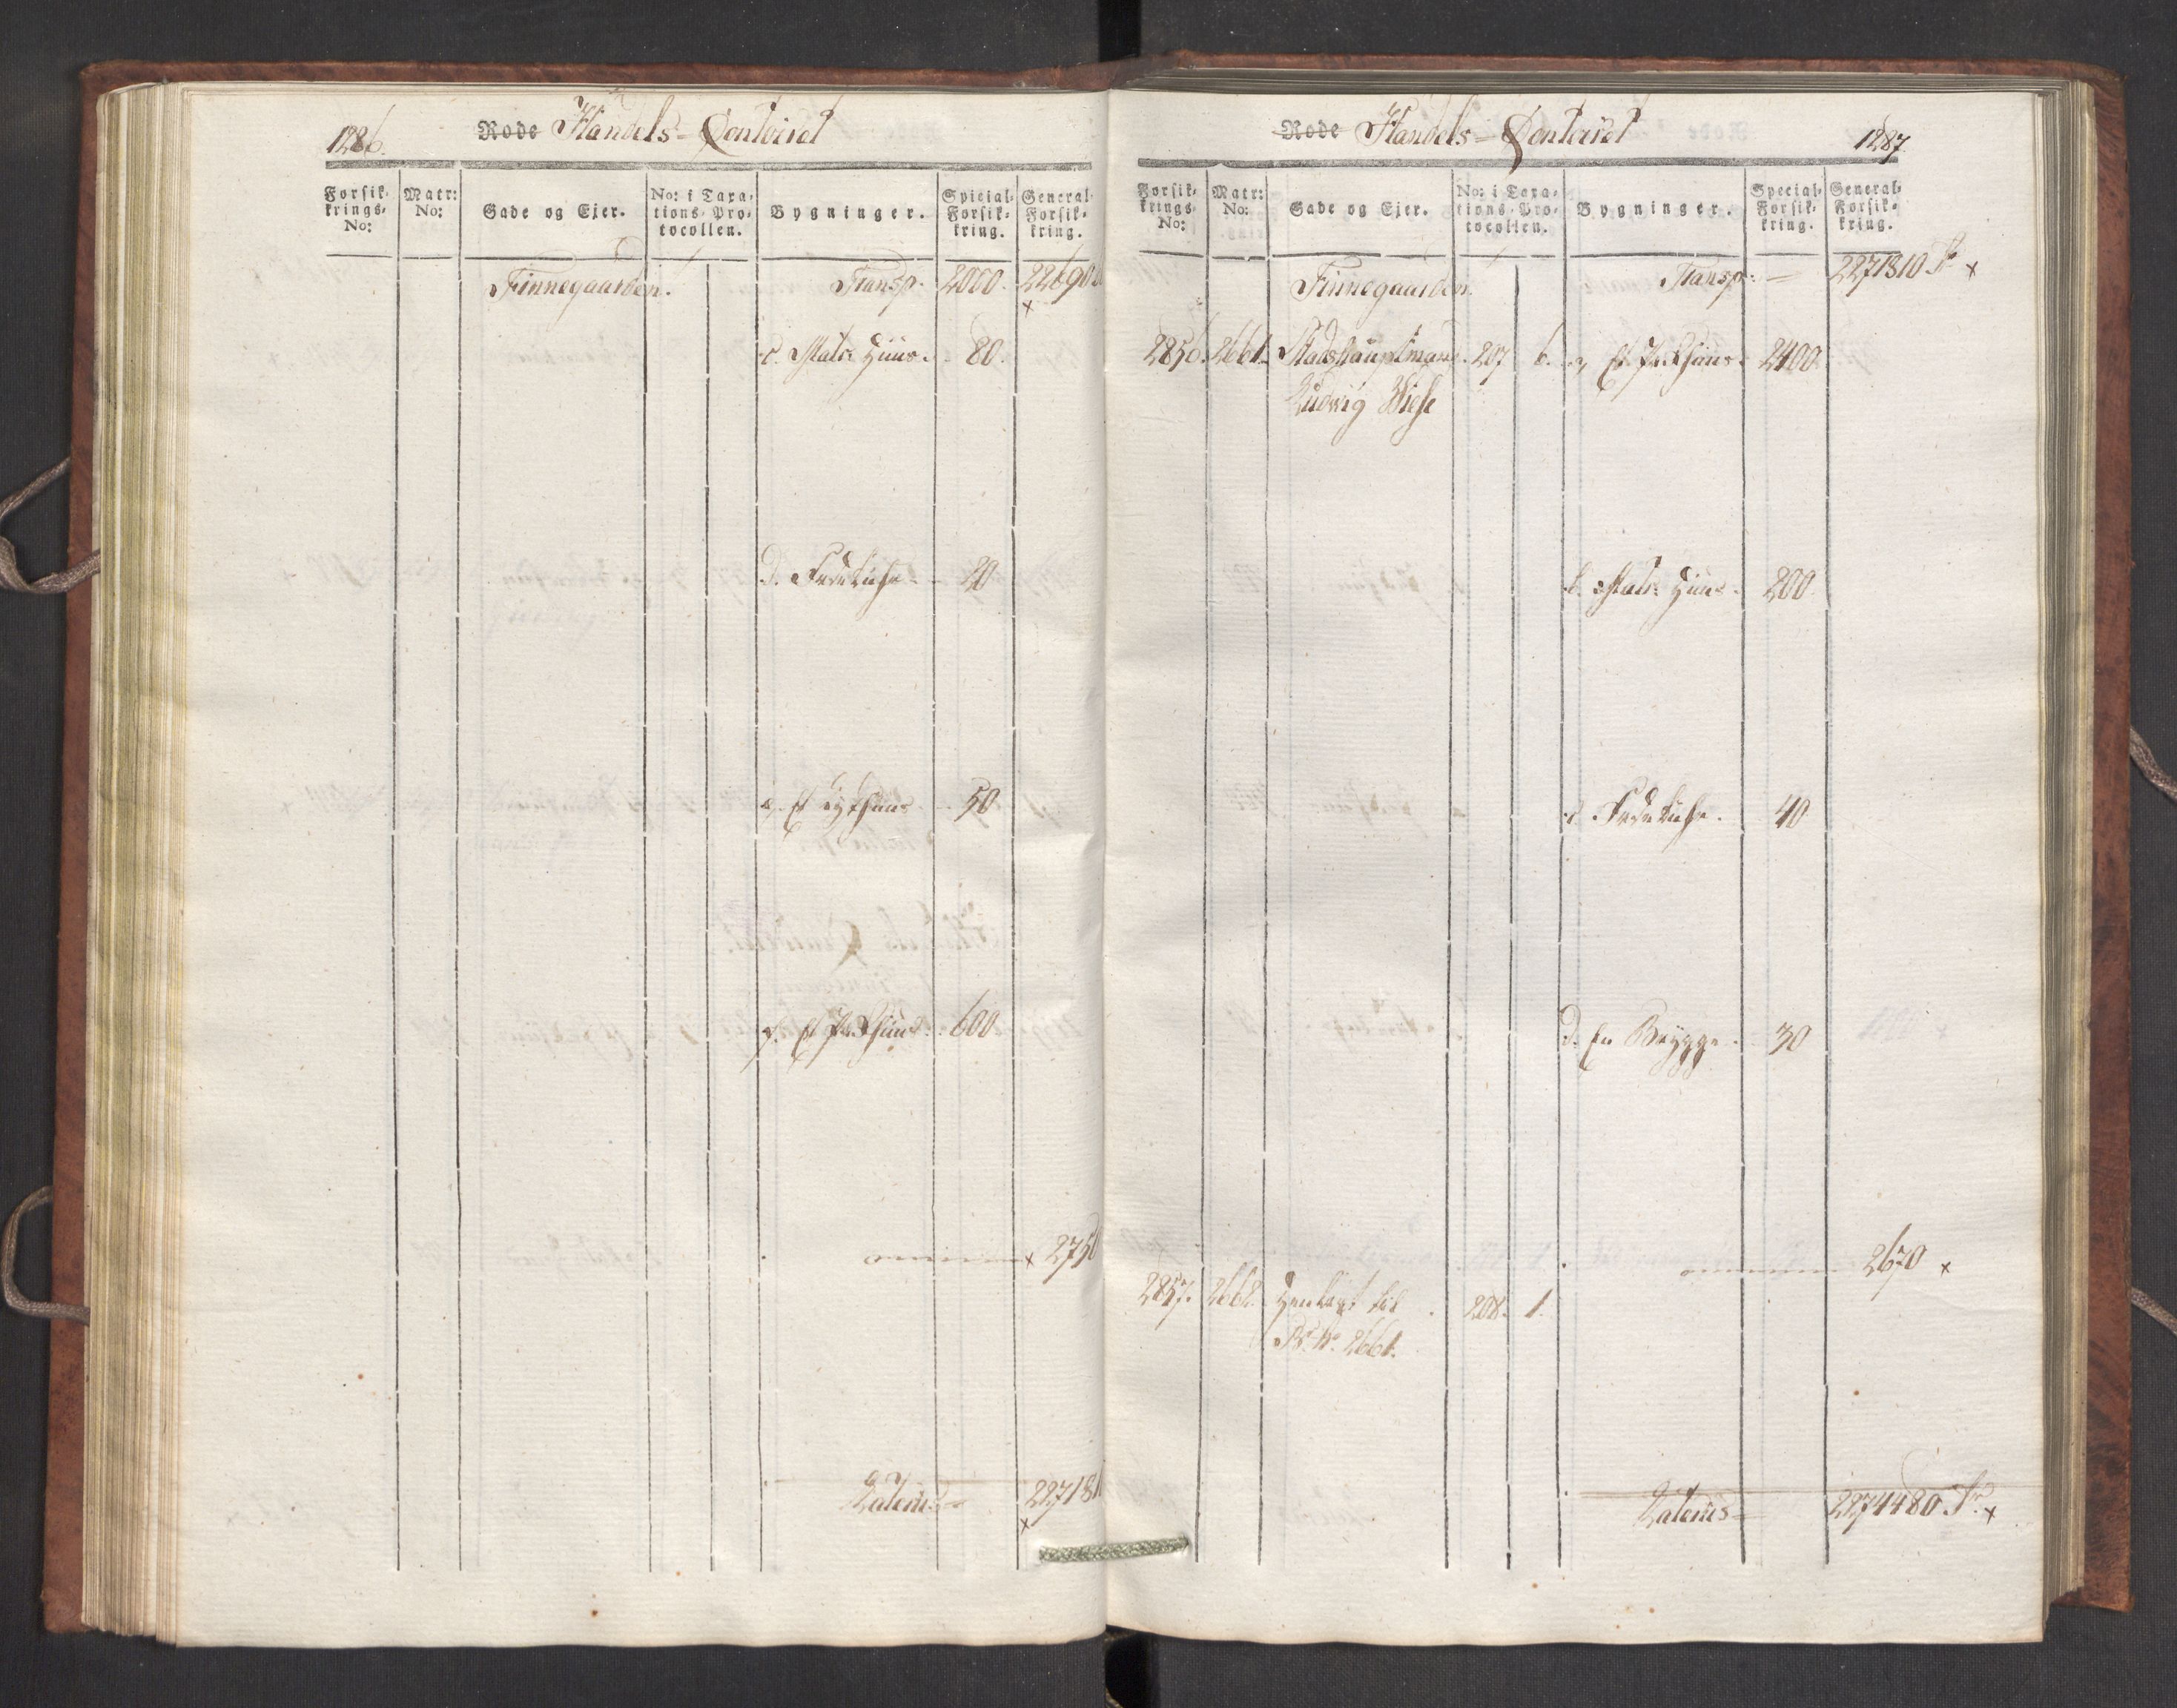 1286.
Rode Handels-Contoiret
Forsik- krings- No: Matr: No: Gade og Ejer. No: i Taxa- tions-Pro- tocollen. Bygninger. Spicial- Forsik- kring. General- Forsik- kring.
Finnegaarden. Transp. 2000. 22690
c. Mats: Huus. 80.
d. 20
e. Et 50
f. Et Pakhuus. 600
2750
Lateris 227181
Rode Handels-Contoiret
1287.
Forsik- krings- No: Matr: No: Gade og Ejer. No: i Taxa- tions-Pro- tocollen. Bygninger. Special- Forsik- kring. General- Forsik- kring.
Finnegaarden. Transp: 2271810
2856. 2661. Stadshauptmand 207 6. a, Et Pakhuus. 2400.
Ludwig Wiese
b. Mats: Huus. 200.
c. 40
d. En Brygge. 30
2670
2857. 2662. Henlagt til 208. 1.
No. 2661.
Lateris 2274480